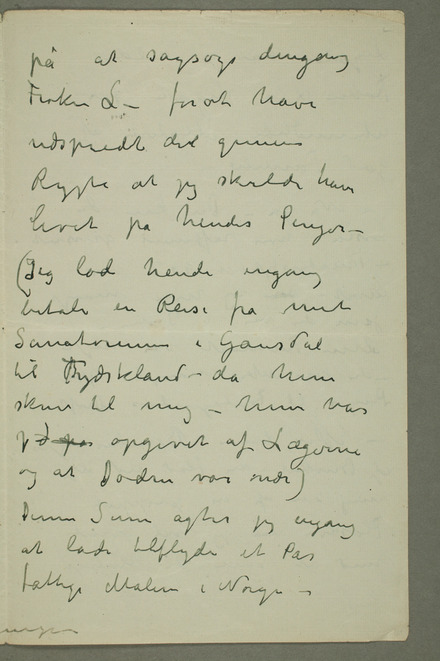 på at sagsøge dengang
Frøken L – for at have
udspredt det gemene
Rygte at jeg skulde have
levet på hendes Penger –
(Jeg lod hende engang
betale en Reise fra mit
Sanatorium i Gausdal
til Tydskland – da hun
skrev til mig – hun var
opgivet af Lægerne
og at Døden var nær)
Denne Sum agter jeg engang
at lade tilflyde et Par
fattige Malere i Norge –